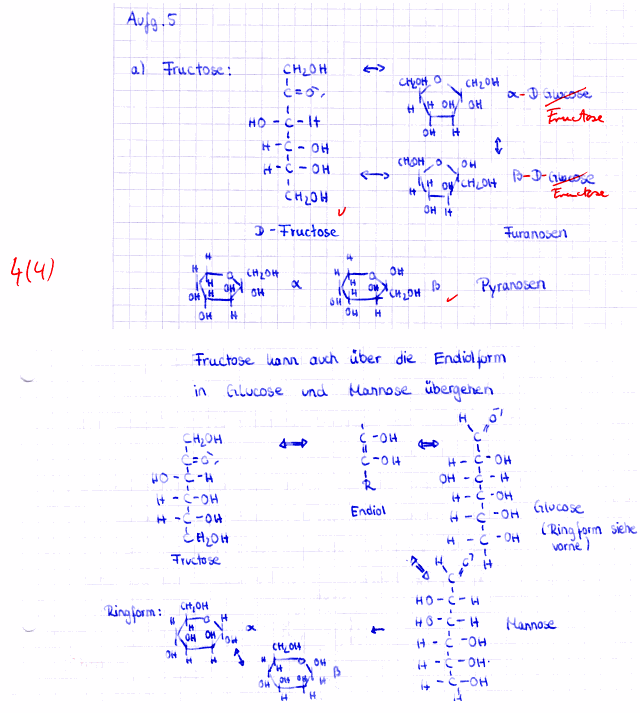 Aufg. 5
a) Fructose:
CH₂OH
C=O
HO - C - H
H - C - OH
H - C - OH
CH₂OH
D - Fructose
CH₂OH O CH₂OH
H OH OH
OH H
α-D-Glucose
Fructose
CH₂OH O OH
H OH CH₂OH
OH H
β-D-Glucose
Fructose
Furanosen
4(4)
H
H O CH₂OH
H H OH OH
OH
OH H
α
H
H O OH
H H OH CH₂OH
OH H
β
Pyranosen
Fructose kann auch über die Endiolform
in Glucose und Mannose übergehen
CH₂OH
C=O
HO - C - H
H - C - OH
H - C - OH
CH₂OH
Fructose
C - OH
C - OH
R
Endiol
H O
C
H - C - OH
OH - C - H
H - C - OH
H - C - OH
H - C - OH
H
Glucose
(Ringform siehe
vorne)
H O
C
HO - C - H
HO - C - H
H - C - OH
H - C - OH
H - C - OH
H
Mannose
Ringform:
CH₂OH
H O H
H
OH OH OH
OH
H H
α
CH₂OH
H O OH
H
OH OH OH H
H H
β